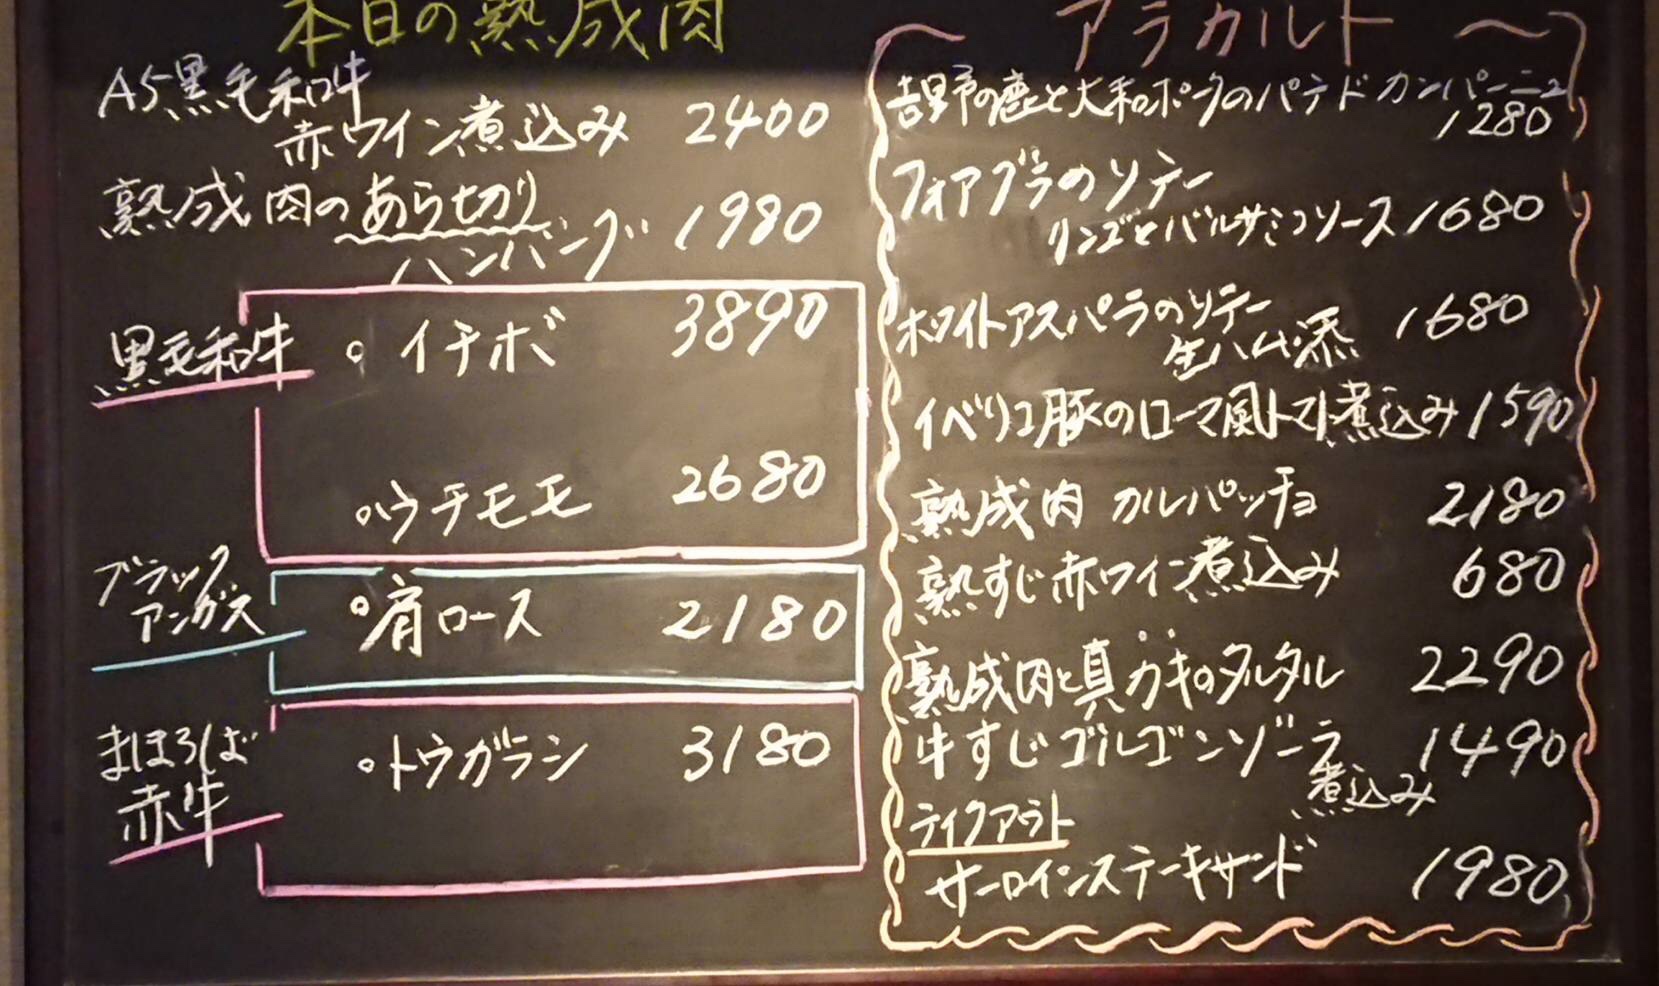 本日の熟成肉
A5黒毛和牛
赤ワイン煮込み 2400
熟成肉のあら切り
ハンバーグ 1980
黒毛和牛
・イチボ 3890
・ウチモモ 2680
ブラック
アンガス
・肩ロース 2180
まほろば
赤牛
・トウガラシ 3180
アラカルト
吉野の鹿と大和ポークのパテドカンパーニュ
1280
フォアグラのソテー
リンゴとバルサミコソース 1680
ホワイトアスパラのソテー
生ハム添 1680
イベリコ豚のローマ風トマト煮込み 1590
熟成肉 カルパッチョ 2180
熟すじ赤ワイン煮込み 680
熟成肉と真カキのタルタル 2290
牛すじゴルゴンゾーラ 1490
煮込み
テイクアウト
サーロインステーキサンド 1980